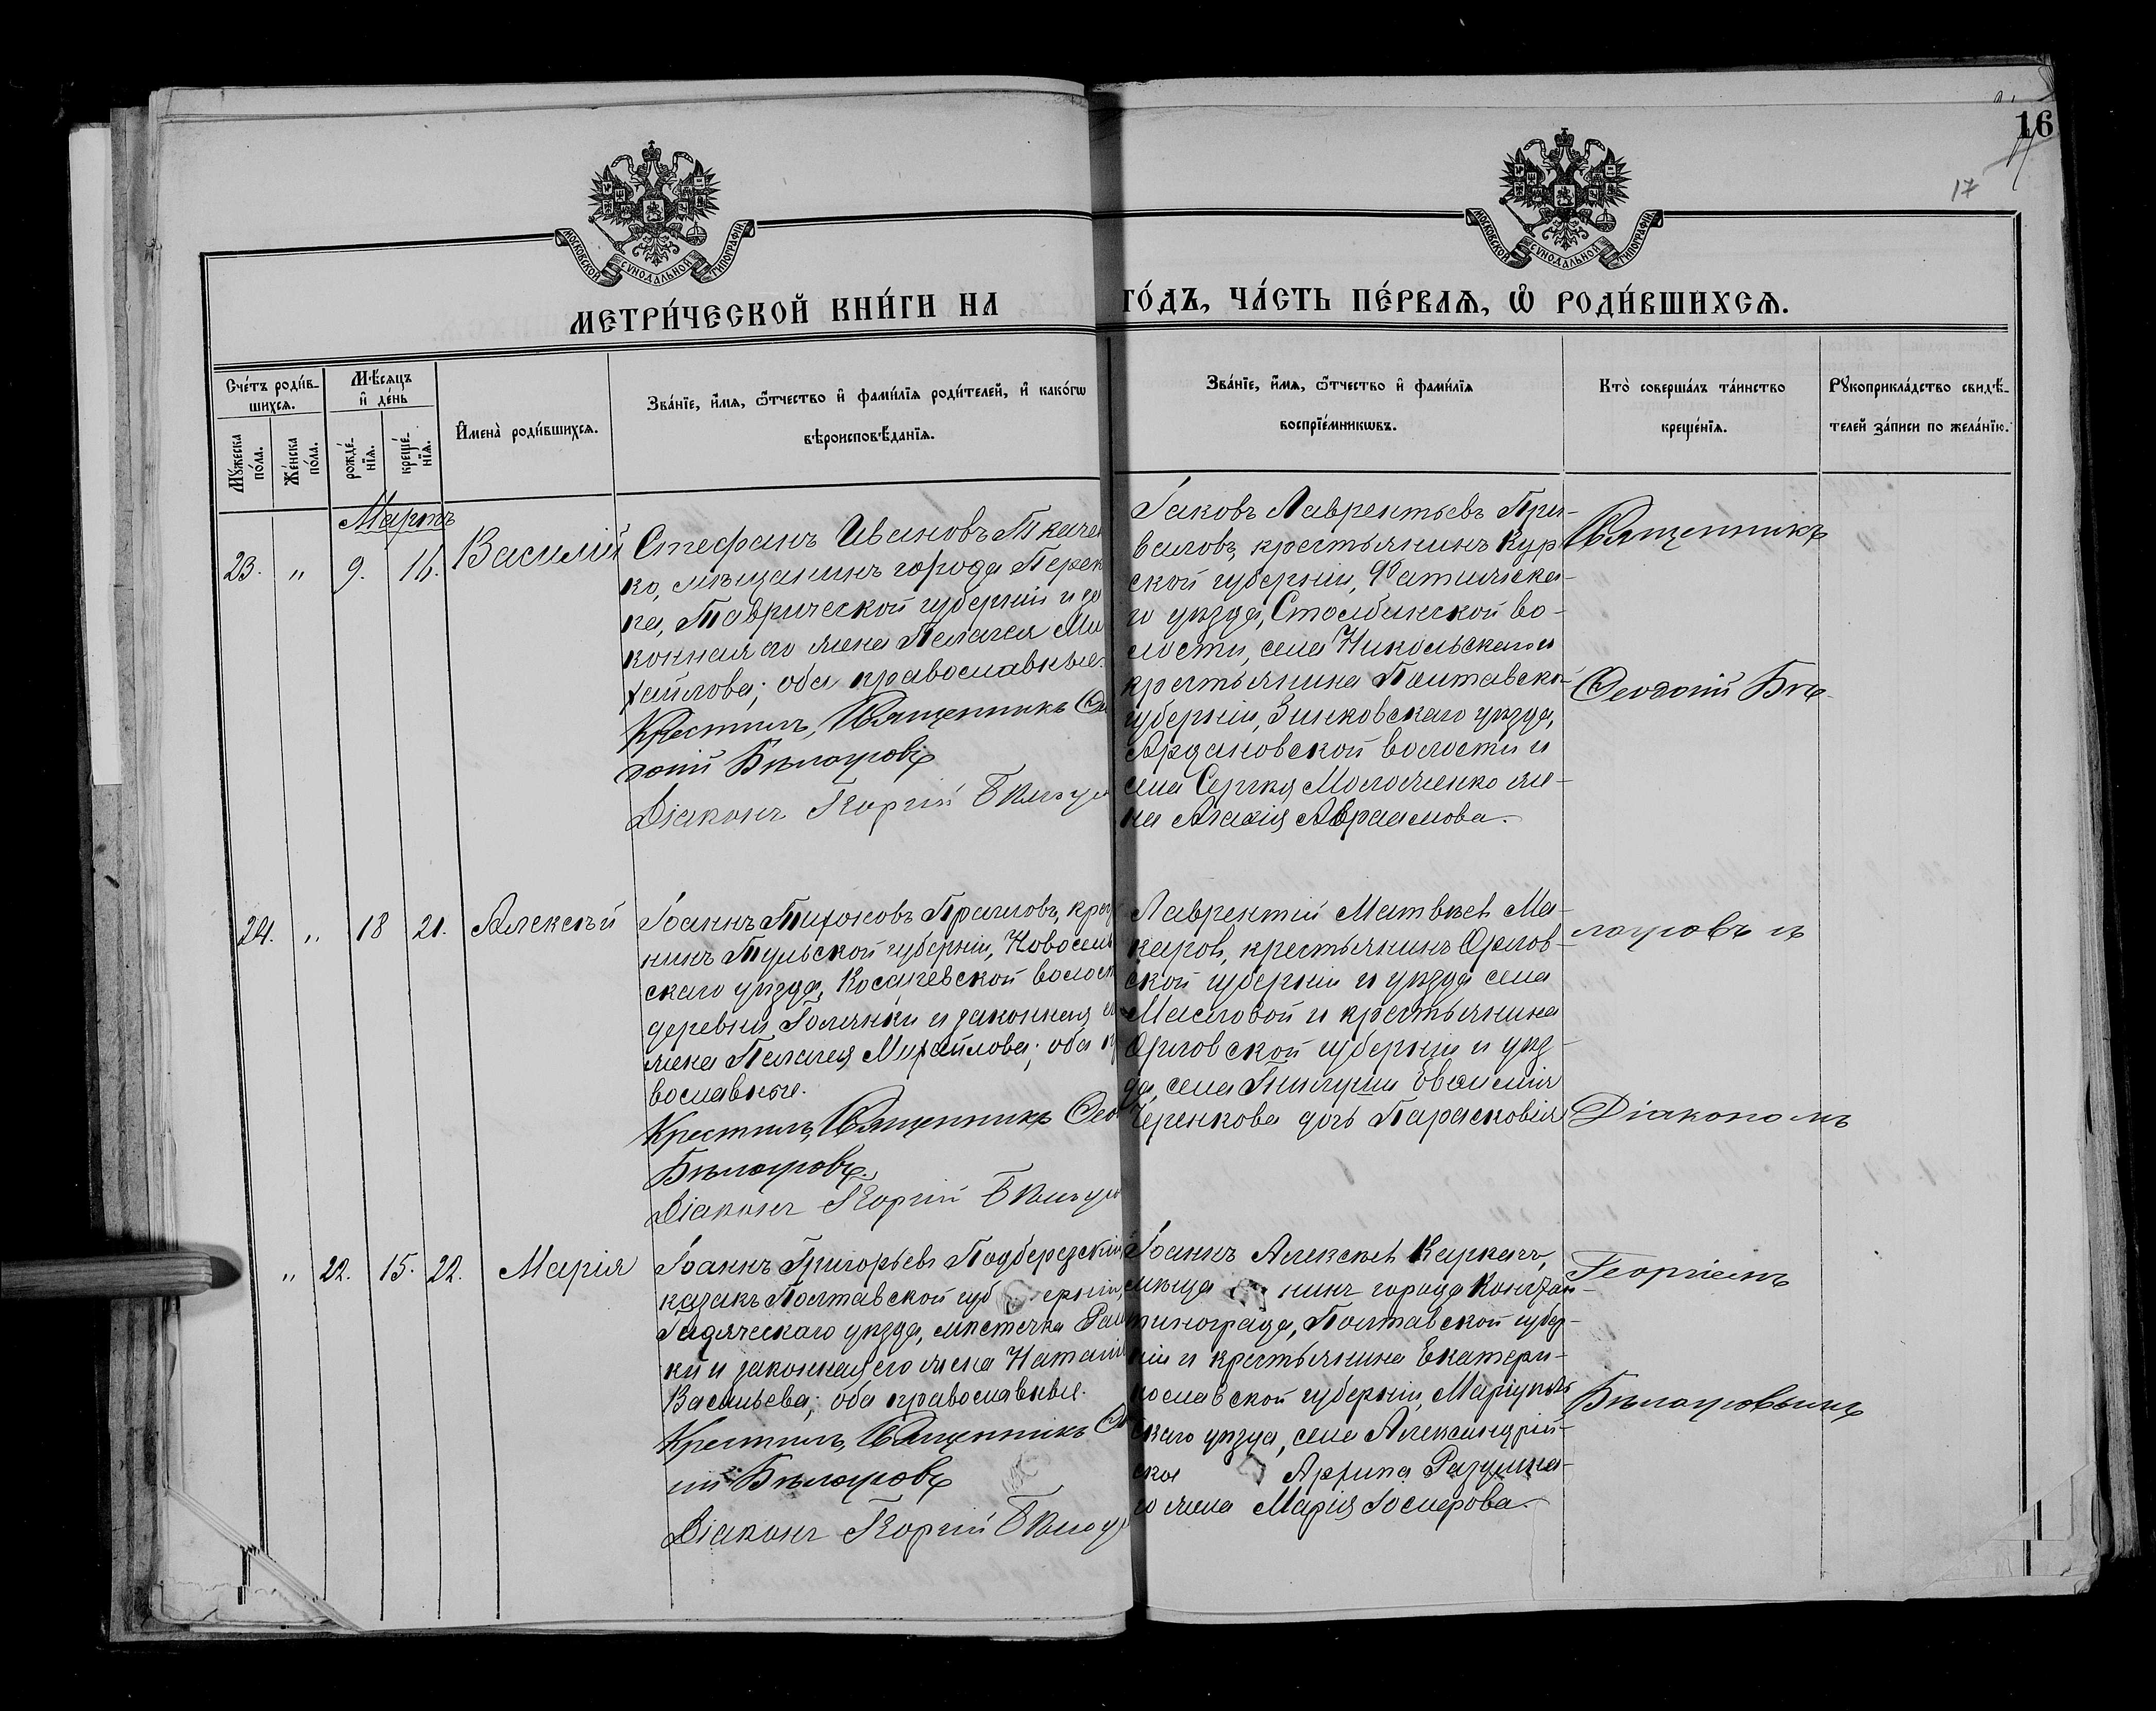 16
17
МОСКОВСКОЙ СѴНОДАЛЬНОЙ ТИПОГРАФІИ
МОСКОВСКОЙ СѴНОДАЛЬНОЙ ТИПОГРАФІИ
МЕТРИ́ЧЕСКОЙ КНИ́ГИ НА ГО́ДЪ, ЧА́СТЬ ПЕ́РВАѦ, Ѡ РОДИ́ВШИХСѦ.
Сче́тъ роди́в-
шихсѧ.
Мꙋ́жеска
по́ла.
Же́нска
по́ла.
Мѣ́сѧцъ
и҆ де́нь
рожде́-
нїѧ.
креще́-
нїѧ.
И҆мена̀ роди́вшихсѧ.
Зва́нїе, и҆́мѧ, ѻ҆́тчество и҆ фами́лїѧ роди́телей, и҆ како́гѡ
вѣроисповѣ́данїѧ.
Зва́нїе, и҆́мѧ, ѻ҆́тчество и҆ фами́лїѧ
воспрїе́мникѡвъ.
Кто̀ соверша́лъ та́инство
креще́нїѧ.
Рꙋкоприкла́дство свидѣ́-
телей за́писи по жела́нїю.
Мартъ
23. „ 9. 16. Василій
Стефанъ Ивановъ Ткачен
ко, мѣщанинъ города Переко
па, Таврической губерніи и за
конная его жена Пелагея Ми
хайлова; оба православные.
Крестилъ, Священникъ Ѳео
досій Бѣлоусовъ
Діаконъ Георгій Бѣлоус
Іаковъ Лаврентьевъ При-
валовъ, крестьянинъ Кур-
ской губерніи, Фатижска-
го уѣзда, Столбинской во-
лости, села Никольскаго и
крестьянина Полтавско-
губерніи, Зинковскаго уѣзда,
Ардановской волости и
села Сергѣя Моложенко же-
на Агафія Авраамова.
Священникъ
Ѳеодосій Бѣ-
24. „ 18 21. Алексѣй
Іоаннъ Тихоновъ Прамовъ, крест
нинъ Тульской губерніи, Новосиль
скаго уѣзда, Косаревской волост
деревни Голянки и законная е
жена Пелагея Михайлова; оба п
вославные.
Крестилъ, Священникъ Ѳео
Бѣлоусовъ.
Діаконъ Георгій Бѣлоус
Лаврентій Матвѣевъ Ма-
каровъ, крестьянинъ Орлов-
ской губерніи и уѣзда села
Масловой и крестьянина
Орловской губерніи и уѣз-
да, села Евфимія
Черенкова дочь Парасковія
лоусовъ съ
Діакономъ
„ 22. 15. 22. Марія
Іоаннъ Григорьевъ Подберезскій
казакъ Полтавской губерніи,
Гадяческаго уѣзда, мѣстечка Раш
ки и законная его жена Наталія
Васильева; оба православные.
Крестилъ, Священникъ Ѳео
ій Бѣлоусовъ
Діаконъ Георгій Бѣлоус
Іоаннъ Алексѣевъ Каркачъ,
мѣщанинъ города Констан-
тинограда, Полтавской губер-
ніи и крестьянина Екатери-
нославской губерніи, Маріуполь
скаго уѣзда, села Александрій-
ска Архипа Разумна-
го жена Марія Іосифова.
Георгіемъ
Бѣлоусовымъ